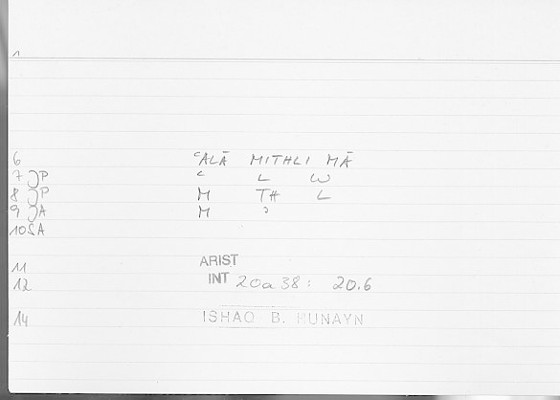 1
6 ʿALĀ MITHLI MĀ
7 P ʿ L W
8 P M TH L
9 A M ʾ
10 ŠA
11 ARIST
12 INT 20a38: 20.6
14 ISHAQ B. HUNAYN